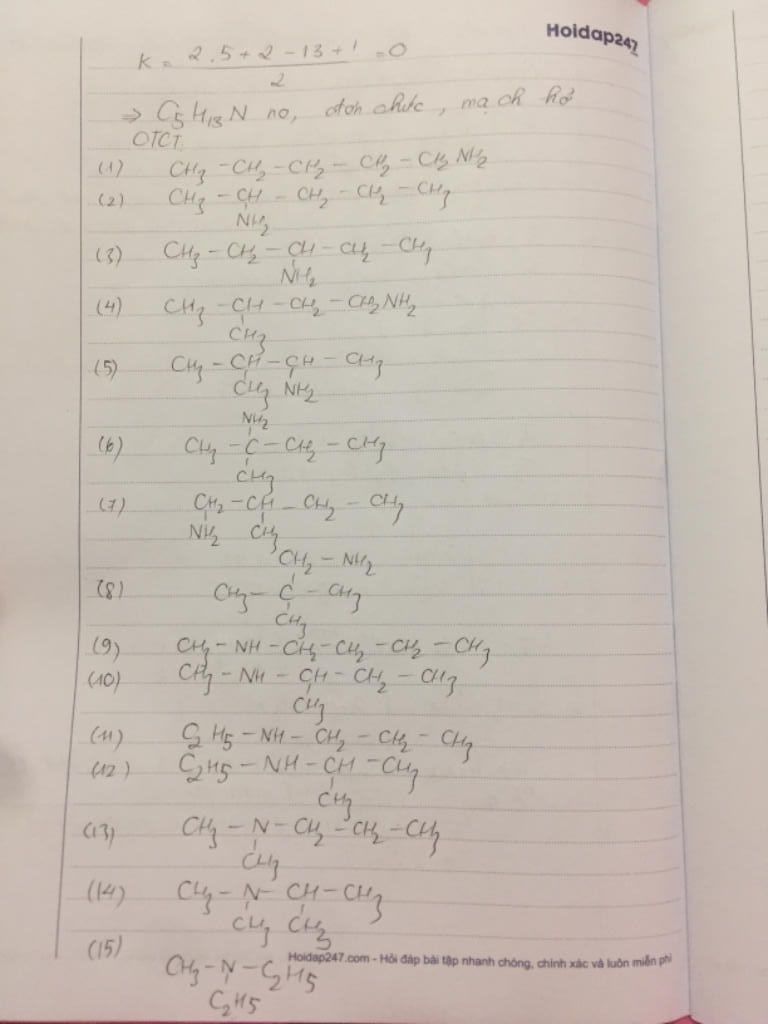 Hoidap247
K = 2.5 + 2 - 13 + 1 / 2 = 0
⇒ C5H13N no, đơn chức, mạch hở
ĐTCT
(1) CH3 - CH2 - CH2 - CH2 - CH2 NH2
(2) CH3 - CH - CH2 - CH2 - CH3
NH2
(3) CH3 - CH2 - CH - CH2 - CH3
NH2
(4) CH3 - CH - CH2 - CH2NH2
CH3
(5) CH3 - CH - CH - CH3
CH3 NH2
NH2
(6) CH3 - C - CH2 - CH3
CH3
(7) CH2 - CH - CH2 - CH3
NH2 CH3
CH2 - NH2
(8) CH3 - C - CH3
CH3
(9) CH3 - NH - CH2 - CH2 - CH2 - CH3
(10) CH3 - NH - CH - CH2 - CH3
CH3
(11) C2H5 - NH - CH2 - CH2 - CH3
(12) C2H5 - NH - CH - CH3
CH3
(13) CH3 - N - CH2 - CH2 - CH3
CH3
(14) CH3 - N - CH - CH3
CH3 CH3
(15)
Hoidap247.com - Hỏi đáp bài tập nhanh chóng, chính xác và luôn miễn phí
CH3 - N - C2H5
C2H5